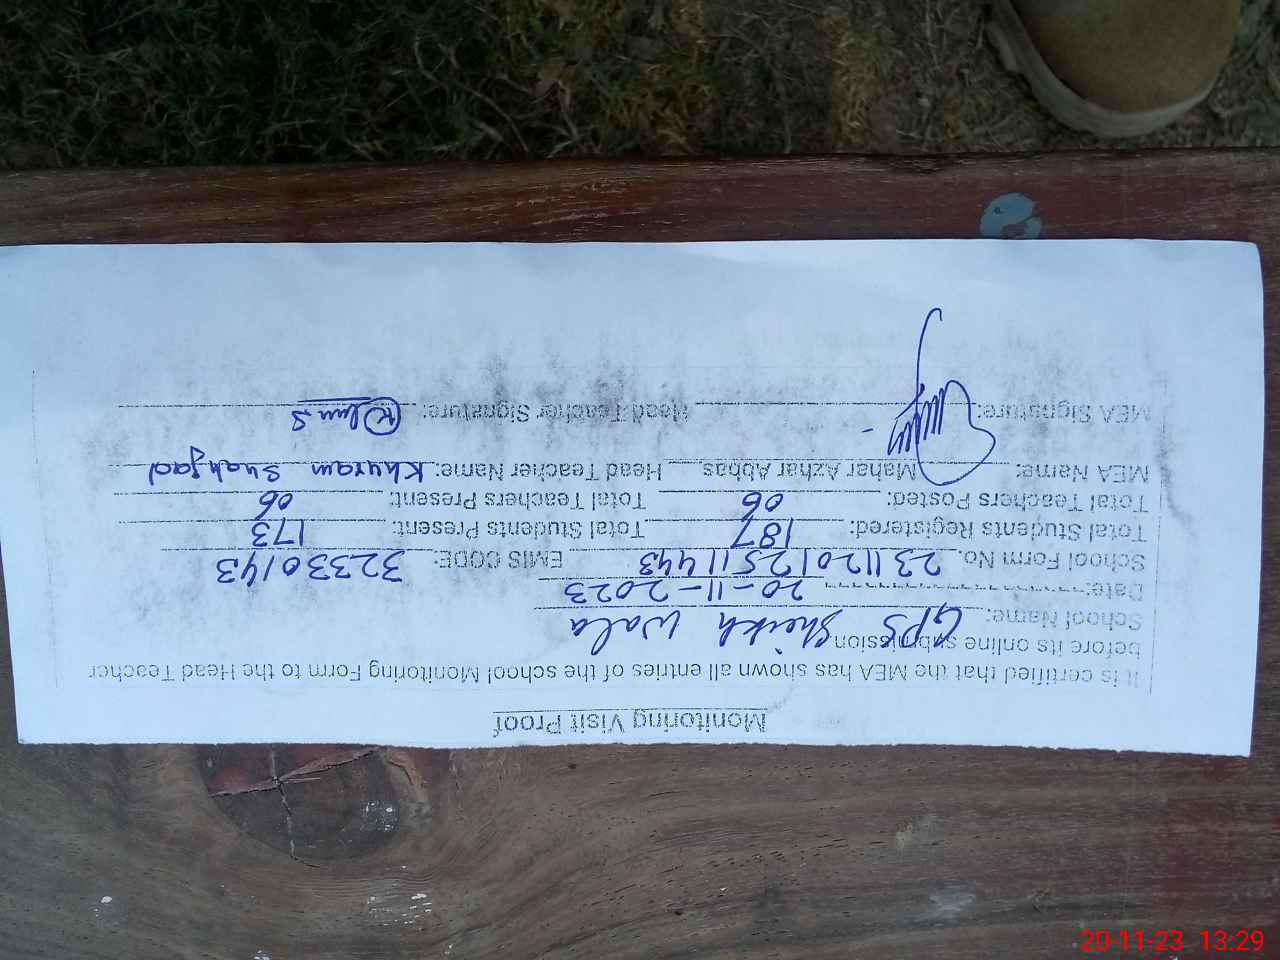 Monitoring Visit Proof
It is certified that the MEA has shown all entries of the school Monitoring Form to the Head Teacher
before its online submission
School Name: GPS Sheikh Wala
Date: 20-11-2023
School Form No. 23112012511443 EMIS CODE: 32330143
Total Students Registered: 187 Total Students Present: 173
Total Teachers Posted: 06 Total Teachers Present: 06
MEA Name: Mahar Azhar Abbas Head Teacher Name: Khuram Shahzad
MEA Signature: Head Teacher Signature:
20-11-23 13:29